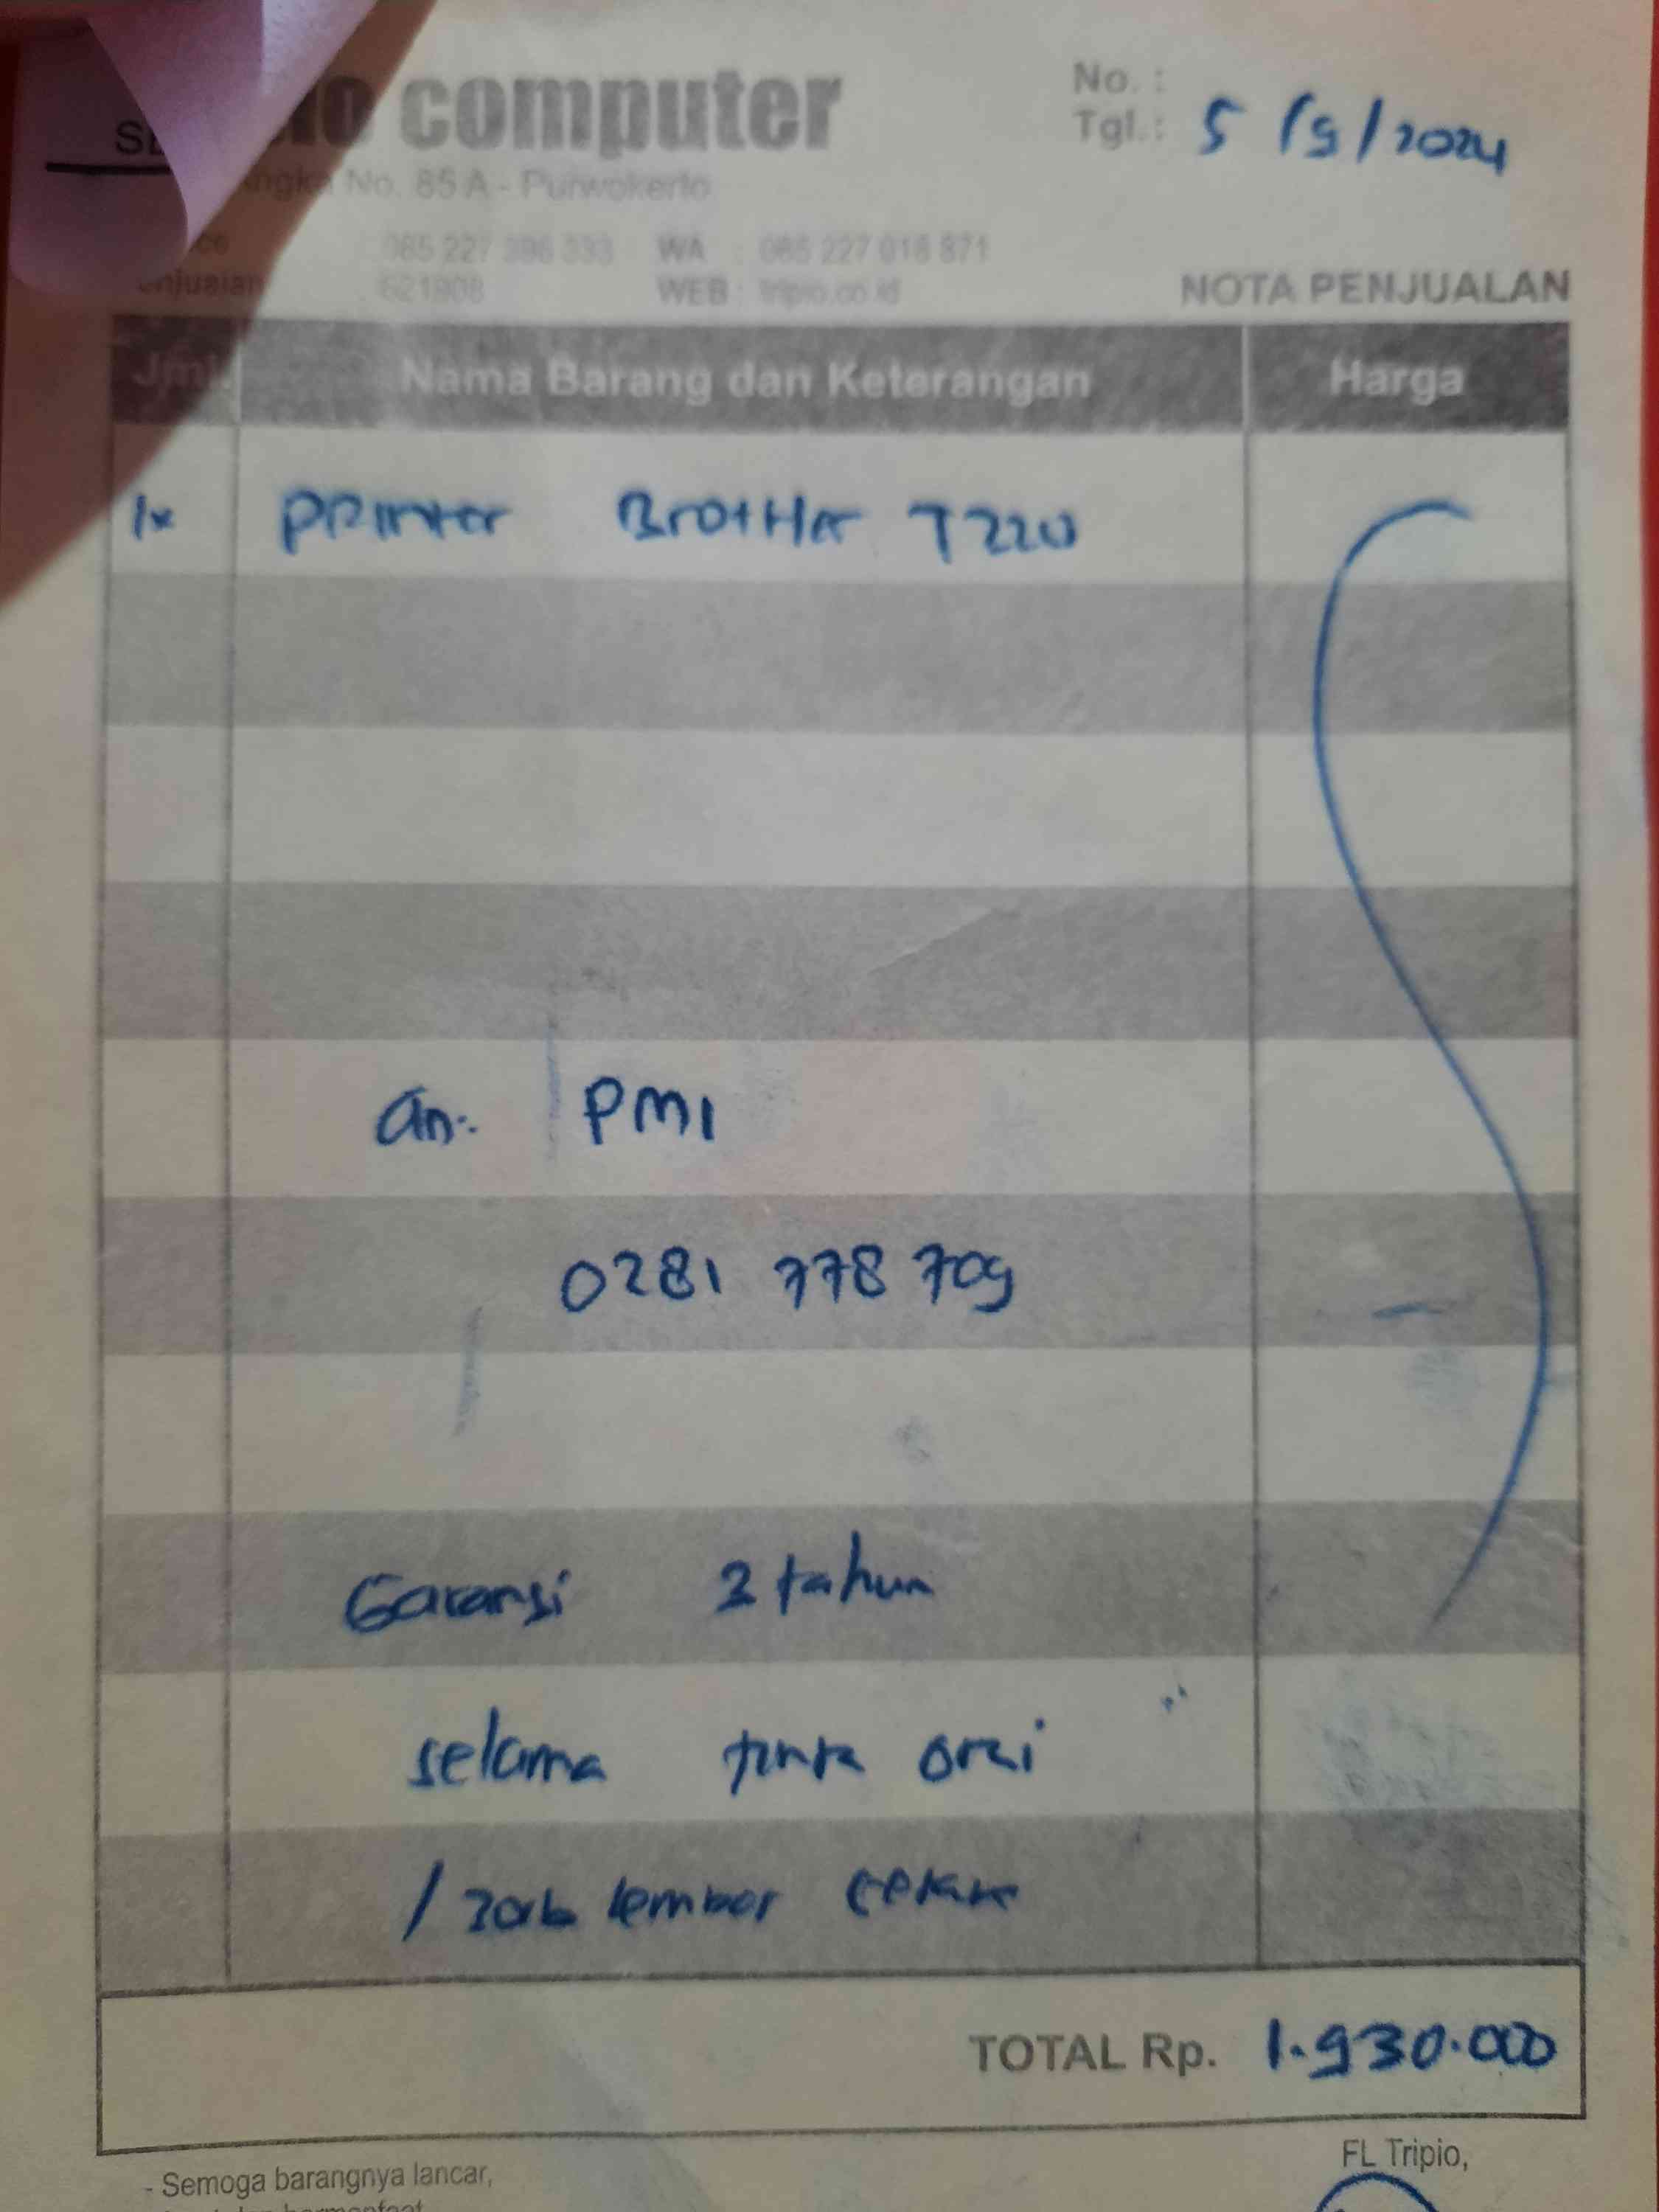 computer
No. :
Tgl.: 5/9/2024
No. 85 A - Purwokerto
085 227 396 333 WA : 085 227 018 871
621908 WEB : tripio.co.id
NOTA PENJUALAN
Jml. Nama Barang dan Keterangan Harga
1x Printer Brother T220
an. PMI
0281 778 709
Garansi 2 tahun
selama tinta ori
lembar cetak
TOTAL Rp. 1.930.000
FL Tripio,
- Semoga barangnya lancar,